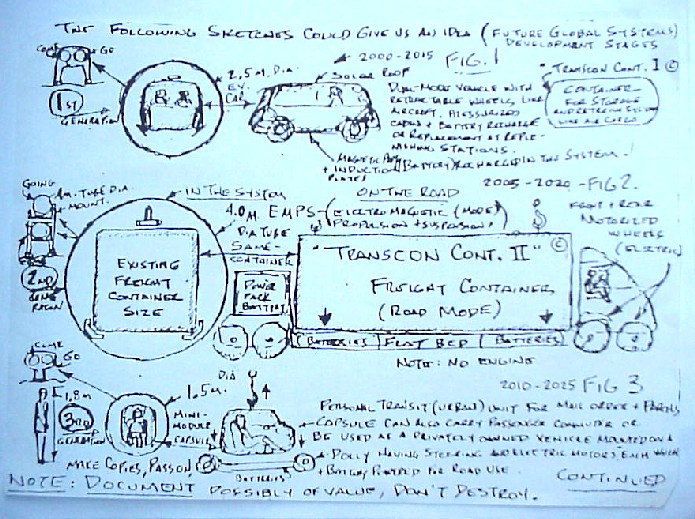 THE FOLLOWING SKETCHES COULD GIVE US AN IDEA (FUTURE GLOBAL SYSTEMS)
DEVELOPMENT STAGES
COME GO
2000-2015 FIG. 1
1ST
GENERATION
2,5 M. DIA.
EV.
CAR
SOLAR ROOF
DUAL-MODE VEHICLE WITH
RETRACTABLE WHEELS, LIKE
AIRCRAFT. PRESSURIZED
CABIN + BATTERY
OR REPLACEMENT AT REPLE-
NISHING STATIONS.
(BATTERY) RECHARGED IN THE SYSTEM!
MAGNETIC
+ INDUCTION
PLATES
"TRANSCON CONT. I ©
CONTAINER
FOR STORAGE
AND RETRIEVAL SYSTEM
LIKE AIR CARGO
2005-2020 - FIG 2.
GOING
4M. TUBE DIA.
MOUNT.
2ND
GENERATION
IN THE SYSTEM
ON THE ROAD
4.0 M.
DIA TUBE
SAME
CONTAINER
EMPS-(ELECTROMAGNETIC (MODE)
PROPULSION + SUSPENSION)
FRONT + REAR
MOTORIZED
WHEELS
(ELECTRIC)
EXISTING
FREIGHT
CONTAINER
SIZE
POWER
PACK
BATTERY
"TRANSCON CONT. II" ©
FREIGHT CONTAINER
(ROAD MODE)
(BATTERIES) FLAT BED (BATTERIES)
NOTE: NO ENGINE
2010-2025 FIG 3
COME GO
1,8 M
3RD
GENERATION
1.5 M.
DIA
MINI-
MODULE
CAPSULE
BATTERIES
PERSONAL TRANSIT (URBAN) UNIT FOR MAIL ORDER + PARCELS
CAPSULE CAN ALSO CARRY PASSENGER COMMUTER OR
BE USED AS A PRIVATELY OWNED VEHICLE MOUNTED ON A
DOLLY HAVING STEERING AND ELECTRIC MOTORS EACH WHEEL
+ BATTERY POWERED FOR ROAD USE.
MAKE COPIES, PASS ON
CONTINUED
NOTE: DOCUMENT POSSIBLY OF VALUE, DON'T DESTROY.